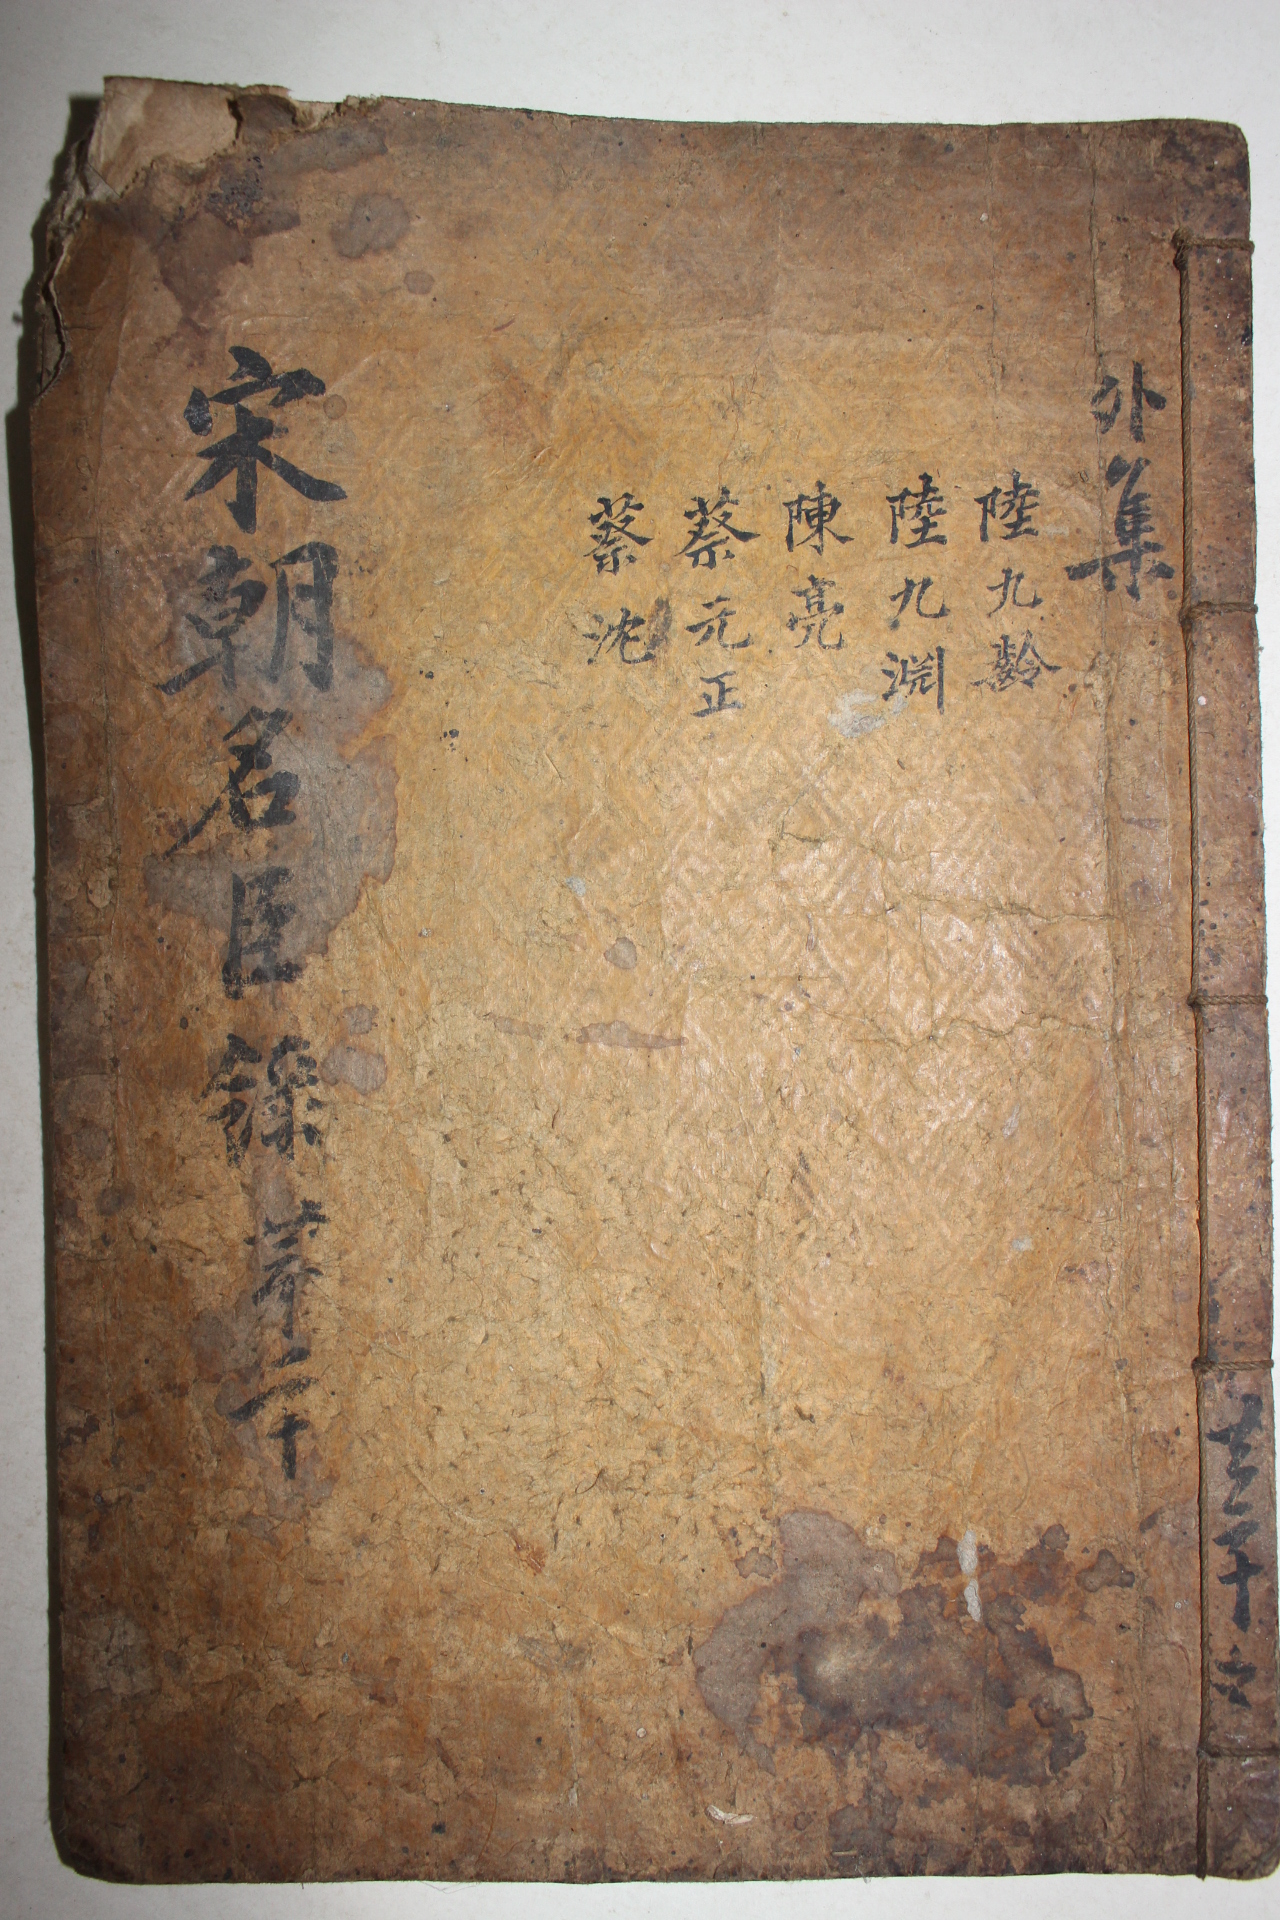 外集
陸九齡
陸九淵
陳亮
蔡元正
蔡沈
宋朝名臣錄苐二十